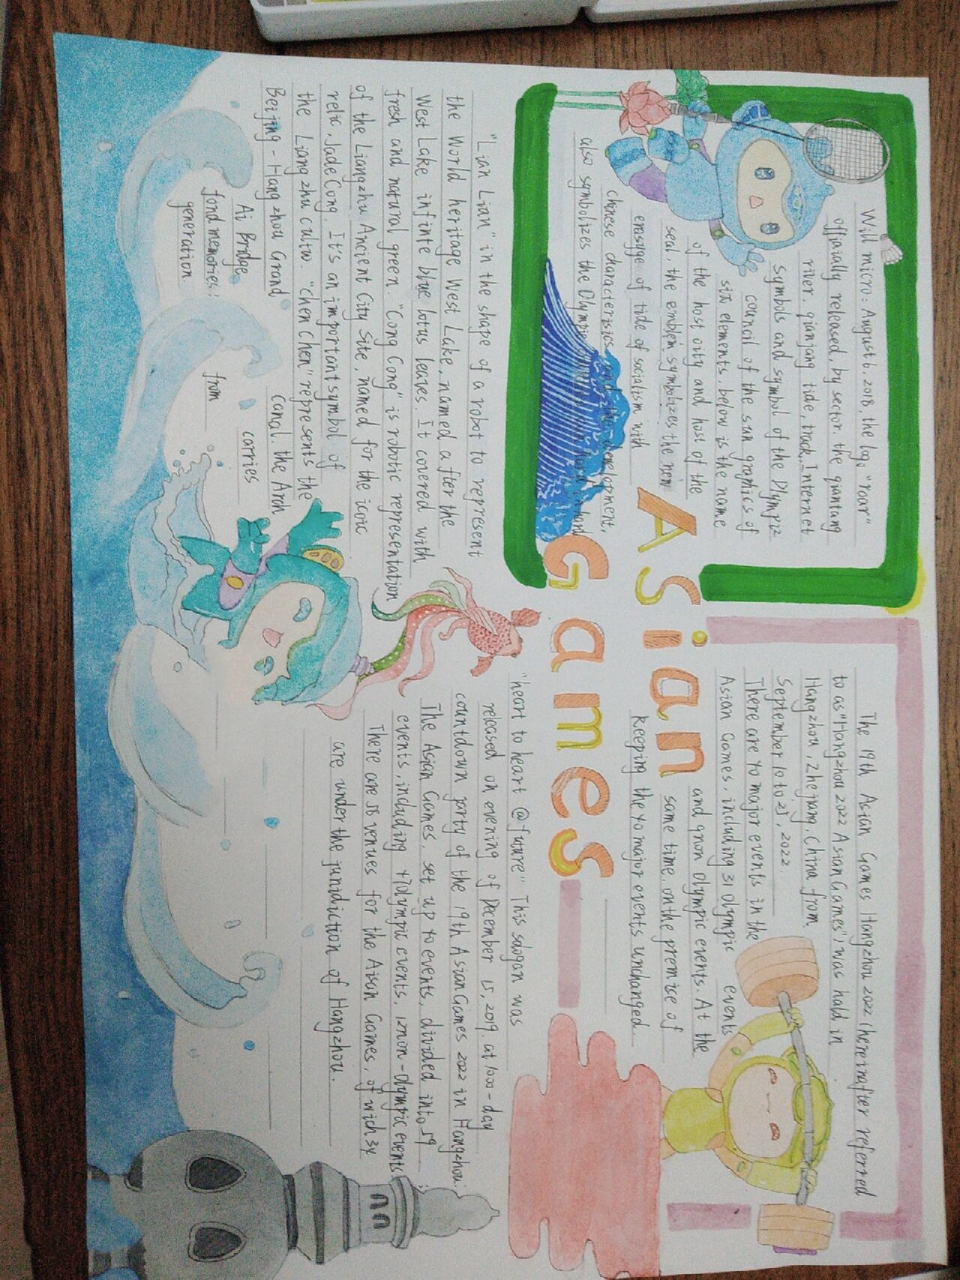 Asian
Games
Will micro: August 6, 2018, the log "roar"
officially released by sector, the qiantang
river, qianjiang tide, track, Internet
symbols and symbol of the Olympic
council of the sun graphics of
six elements, below is the name
of the host city and host of the
seal, the emblem symbolizes the new
erasyge of tide of socialism with
chinese characteristics
also symbolizes the Olympic
The 19th Asian Games Hangzhou 2022 (hereinafter referred
to as "Hangzhou 2022 Asian Games") was hold in
Hangzhou, Zhejiang, China from
September 10 to 25, 2022
There are 40 major events in the
Asian Games, including 31 Olympic events
and gnon Olympic events. At the
same time, on the premise of
keeping the 40 major events unchanged
"Lian Lian" in the shape of a robot to represent
the World heritage West Lake, named after the
West Lake infinte blue lotus leaves. It covered with
fresh and natural green. "Cong Cong" is robotic representation
of the Liangzhu Ancient City Site, named for the icoic
relic, Jade Cong. It's an important symbol of
the Liangzhu cultu. "chen chen" represents the
Beijing-Hangzhou Grand canal. the Arch
Ai Bridge, carries
fond memories: from
generation
"heart to heart @future" This salogan was
released on evening of December 15, 2019, at 1000-day
countdown party of the 19th Asian Games 2022 in Hangzhou.
The Asian Games, set up 40 events, divided into 59
events, including Olympic events, non-olympic events
There are 55 venues for the Aisan Games, of wich 34
are under the juridiction of Hangzhou.